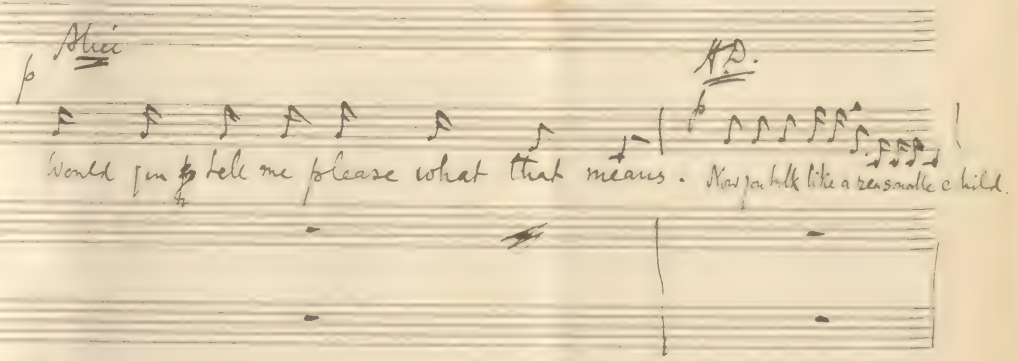 Alice
H.D.
p
p
Would you tell me please what that means. Now you talk like a reasonable child.